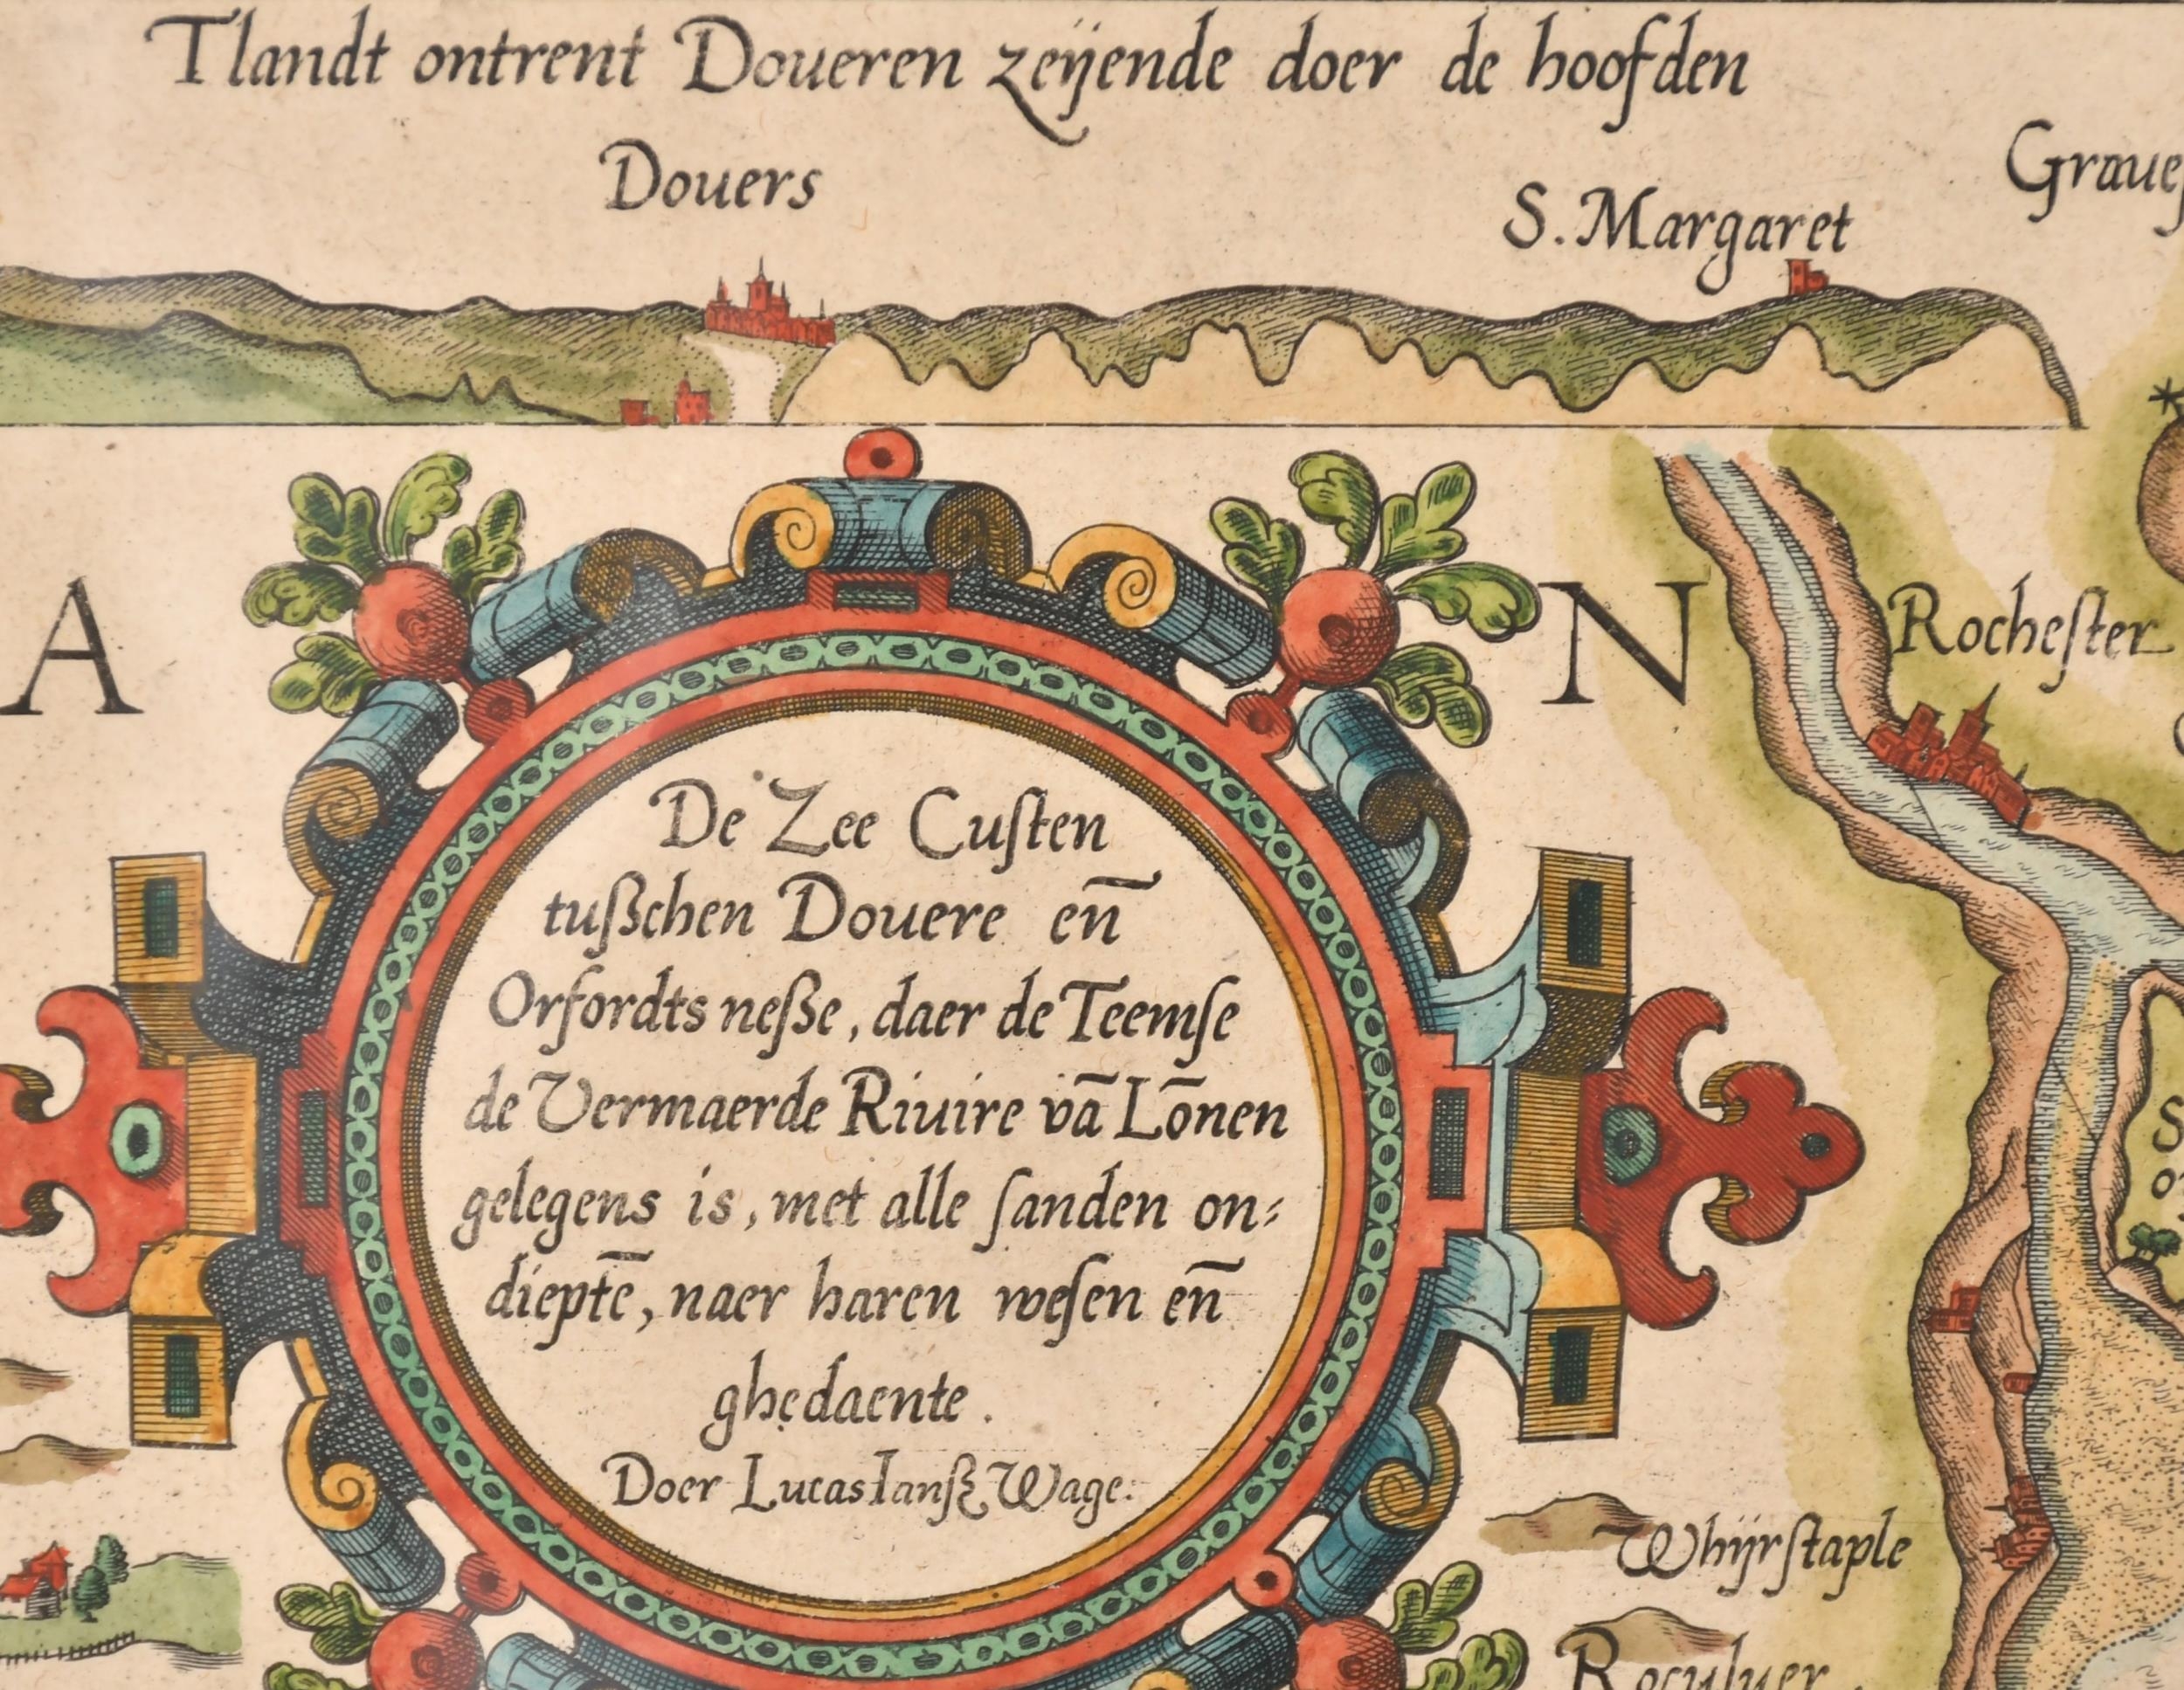 Tlandt ontrent Doueren zeijende doer de hoofden
Douers
S. Margaret
A
N
Rocheſter
De Zee Cuſten
tußchen Douere en̄
Orfordts neße, daer de Teemſe
de Vermaerde Riuire vā Lōnen
gelegens is, met alle ſanden on⸗
dieptē, naer haren weſen en̄
ghedaente.
Doer Lucas Ianß Wage.
Whijrſtaple